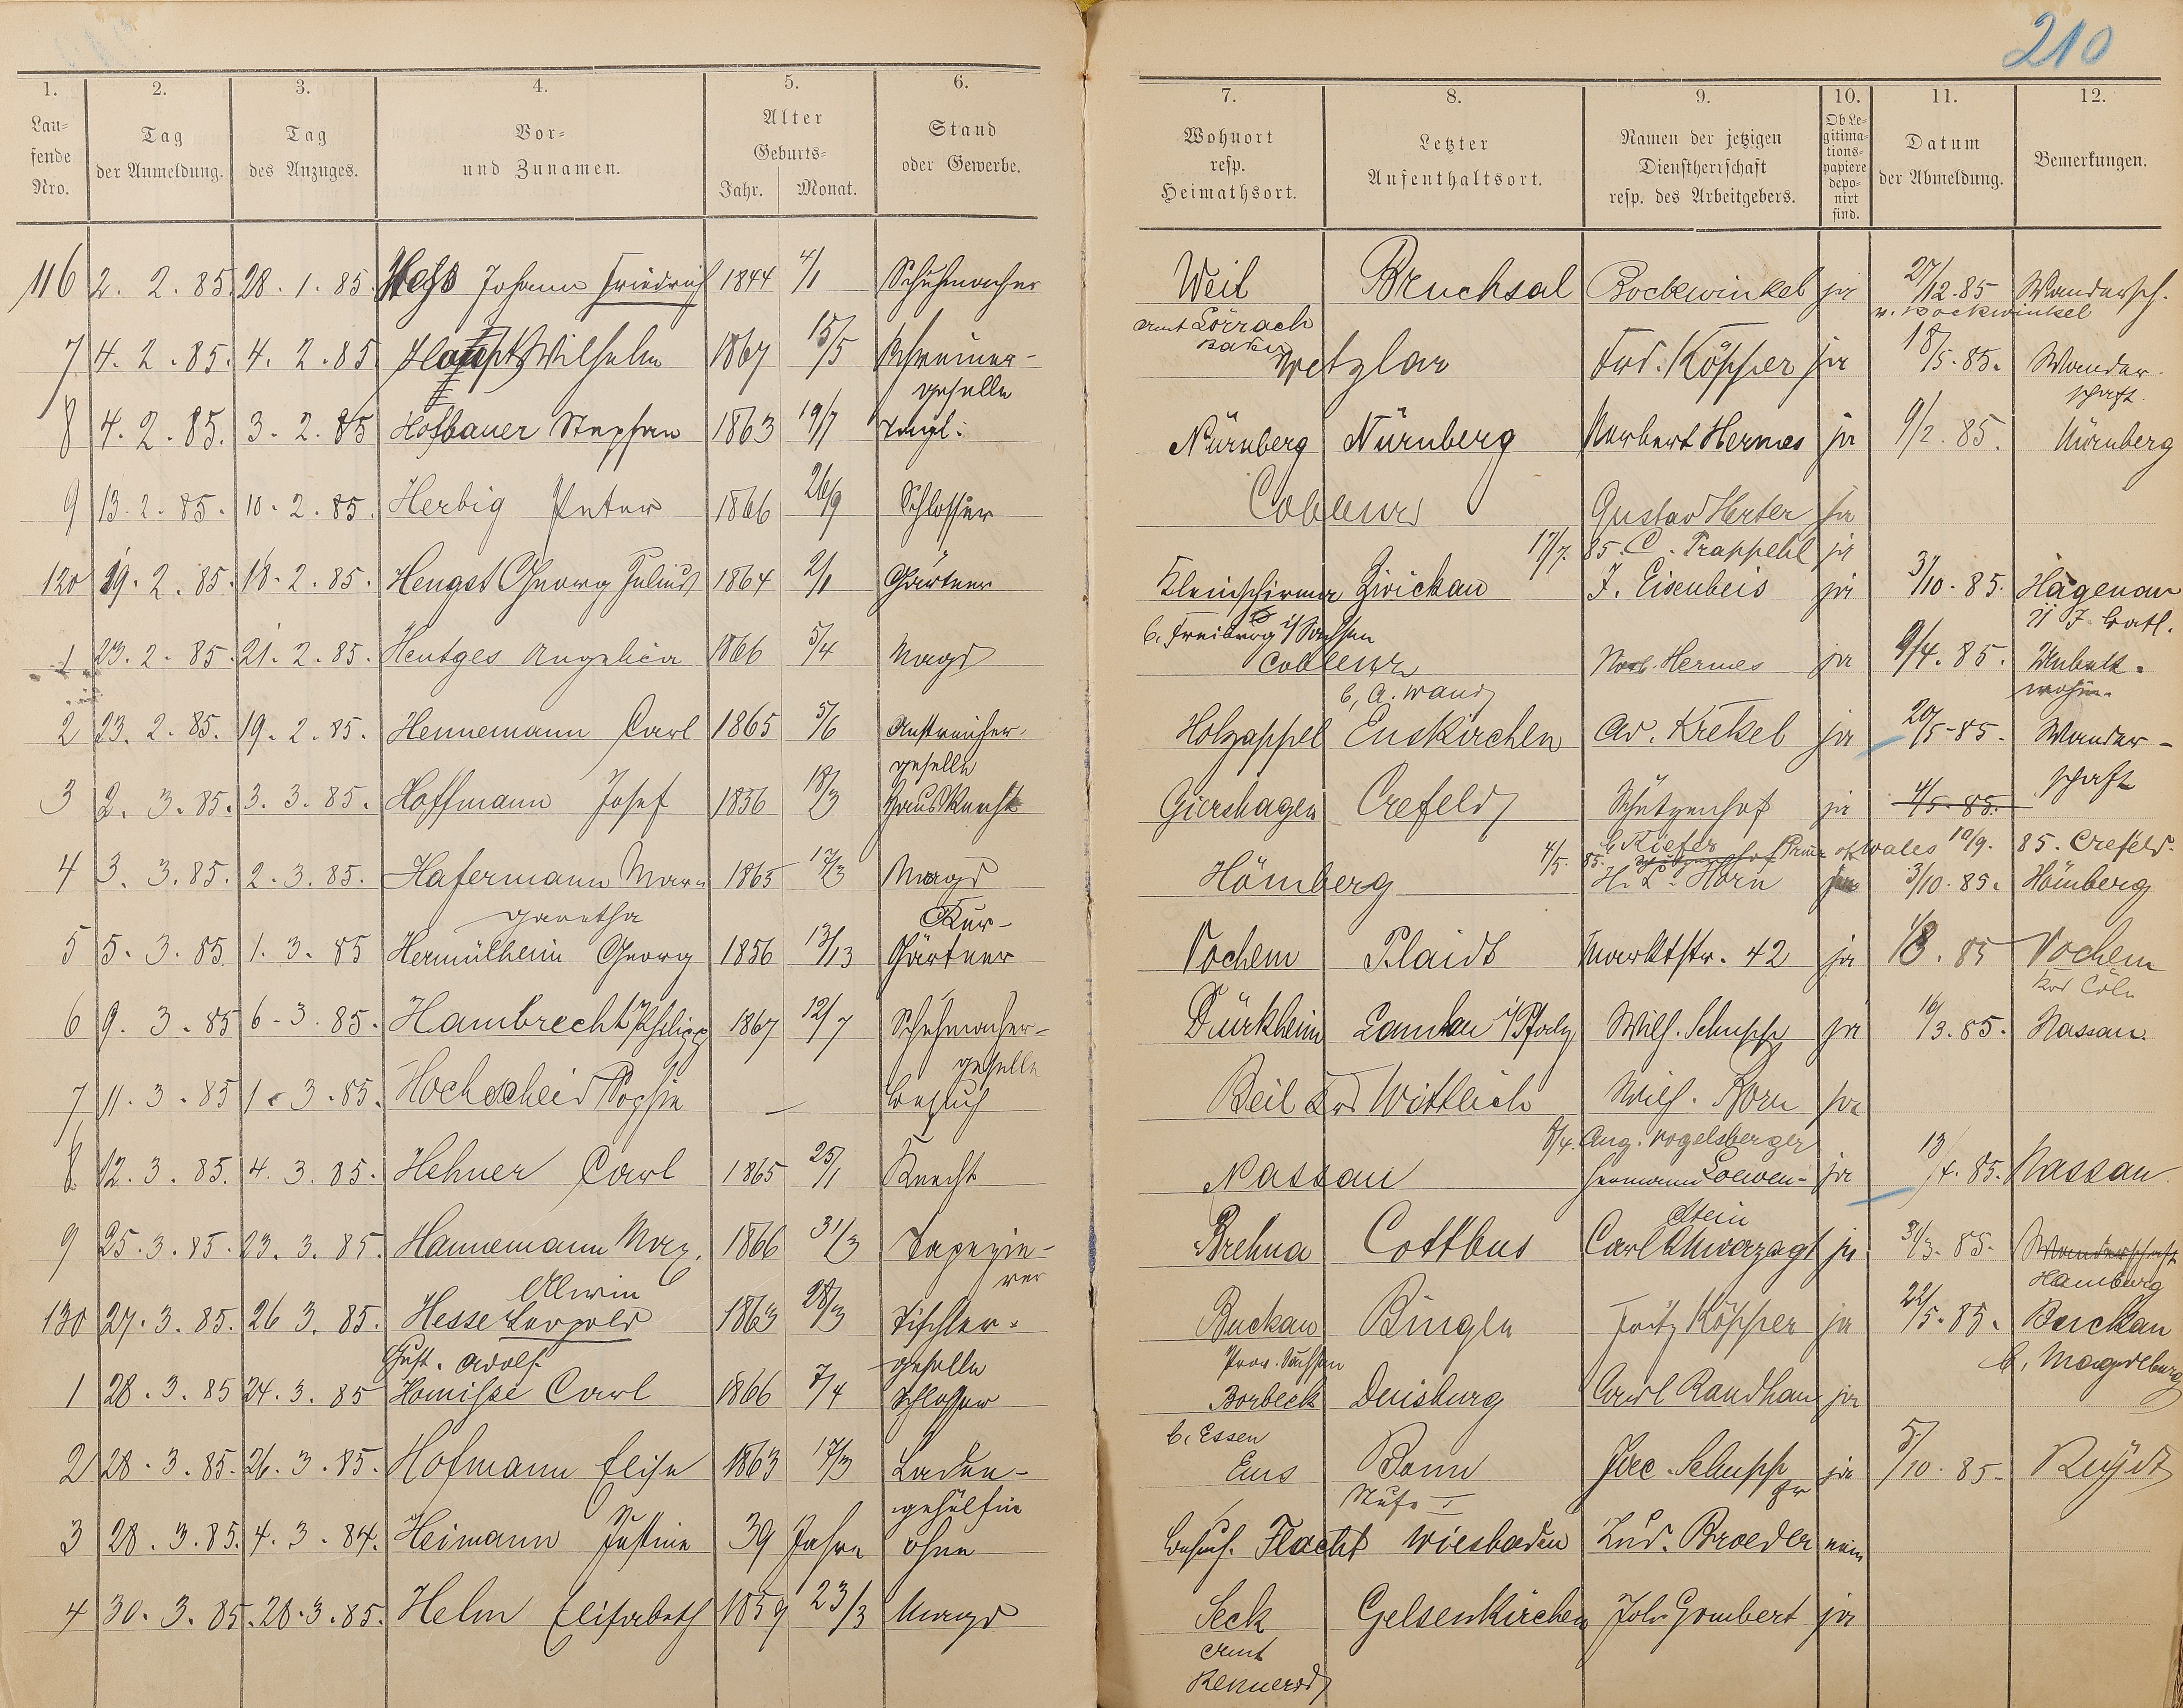 210
1. 2. 3. 4. 5. 6. 7. 8. 9. 10. 11. 12.
Lau-
fende
Nro.
Tag
der Anmeldung.
Tag
des Anzuges.
Vor-
und Zunamen.
Alter
Geburts-
Jahr. Monat.
Stand
oder Gewerbe.
Wohnort
resp.
Heimathsort.
Letzter
Aufenthaltsort.
Namen der jetzigen
Dienstherrschaft
resp. des Arbeitgebers.
Ob Le-
gitima-
tions-
papiere
depo-
nirt
sind.
Datum
der Abmeldung.
Bemerkungen.
116 2. 2. 85. 28. 1. 85. Hess Johann Friedrich 1844 4/1 Schuhmacher Weil Bruchsal Bockwinkel ja 27/12. 85 Wandersch.
Amt Lörrach Baden v. Bockwinkel
7 4. 2. 85. 4. 2. 85 Wilhelm 1867 15/5 Schreiner- Wetzlar Frd. Köpper ja 18/5. 85. Wander-
geselle schaft.
8 4. 2. 85. 3. 2. 85 Hofbauer Stephan 1863 19/7 Nürnberg Nürnberg Norbert Hermes ja 9/2. 85. Nürnberg
9 13. 2. 85. 10. 2. 85. Herbig Peter 1866 26/9 Schlosser Coblenz Gustav Herter ja
17/7. 85. C. Trappehl ja
120 19. 2. 85. 18. 2. 85. Hengst Georg Julius 1864 2/1 Gärtner Kleinschirma Zwickau J. Eisenbeis ja 3/10. 85. Hagenau
b. Freiberg i/ Sachsen
1 23. 2. 85. 21. 2. 85. Hentges Angelica 1866 5/4 Magd Coblenz Norb. Hermes ja 9/4. 85. Unbek.
2 23. 2. 85. 19. 2. 85. Hennemann Carl 1865 5/6 Anstreicher- Holzappel Euskirchen Ad. Kretzel ja 20/5 85. Wander-
geselle schaft
3 2. 3. 85. 3. 3. 85. Hoffmann Josef 1856 18/3 Hausknecht Giershagen Crefeld Schützenhof ja 4/5. 85.
4/5. 85. b. Kiefer Prince of Wales 10/9. 85. Crefeld.
4 3. 3. 85. 2. 3. 85. Hafermann Mar- 1865 17/3 Magd Hömberg H. L. Horn ja 3/10. 85. Hömberg
garetha
Kur-
5 5. 3. 85. 1. 3. 85 Hermülheim Georg 1856 Gärtner Vochem Plaidt Marktstr. 42 ja 85 Vochem
Krs Cöln
6 9. 3. 85 6. 3. 85. Hambrecht Philipp 1867 12/7 Schuhmacher- Dürkheim Landau i/Pfalz Wilh. Schupp ja 16/3. 85. Nassau.
geselle
7 11. 3. 85 1. 3. 85. Hochscheid Sophie — Besuch Beil Krs Wittlich Wilh. Korn ja
8/4. Aug. Vogelsberger
8 12. 3. 85. 4. 3. 85. Hehner Carl 1865 25/1 Knecht Nassau Hermann Loewen- ja 13/4. 85. Nassau
stein
9 25. 3. 85. 23. 3. 85. Hannemann Max 1866 31/3 Tapezie- Brehna Cottbus Carl Schwarzagt ja 31/3. 85. Wanderschaft
Alwin rer Hamburg
130 27. 3. 85. 26 3. 85. Hesse Leopold 1863 28/3 Tischler- Buckau Bingen Fritz Köpper ja 22/5. 85. Buckau
Gust. Adolf. geselle Prov. Sachsen b. Magdeburg
1 28. 3. 85 24. 3. 85 Carl 1866 7/4 Schlosser Borbeck Duisburg Carl Randhan ja
b. Essen
2 28. 3. 85. 26. 3. 85. Hofmann Elise 1863 17/3 Laden- Ems Bonn Jac. Schupp ja 5/10. 85. Rheydt
gehülfin
3 28. 3. 85. 4. 3. 84. Heimann Justine 39 Jahre ohne Besuch. Flacht Wiesbaden Lud. Broeder nein
4 30. 3. 85. 28. 3. 85. Helm Elisabeth 1859 23/3 Magd Seck Gelsenkirchen Joh. Gombert ja
Amt
Rennerod